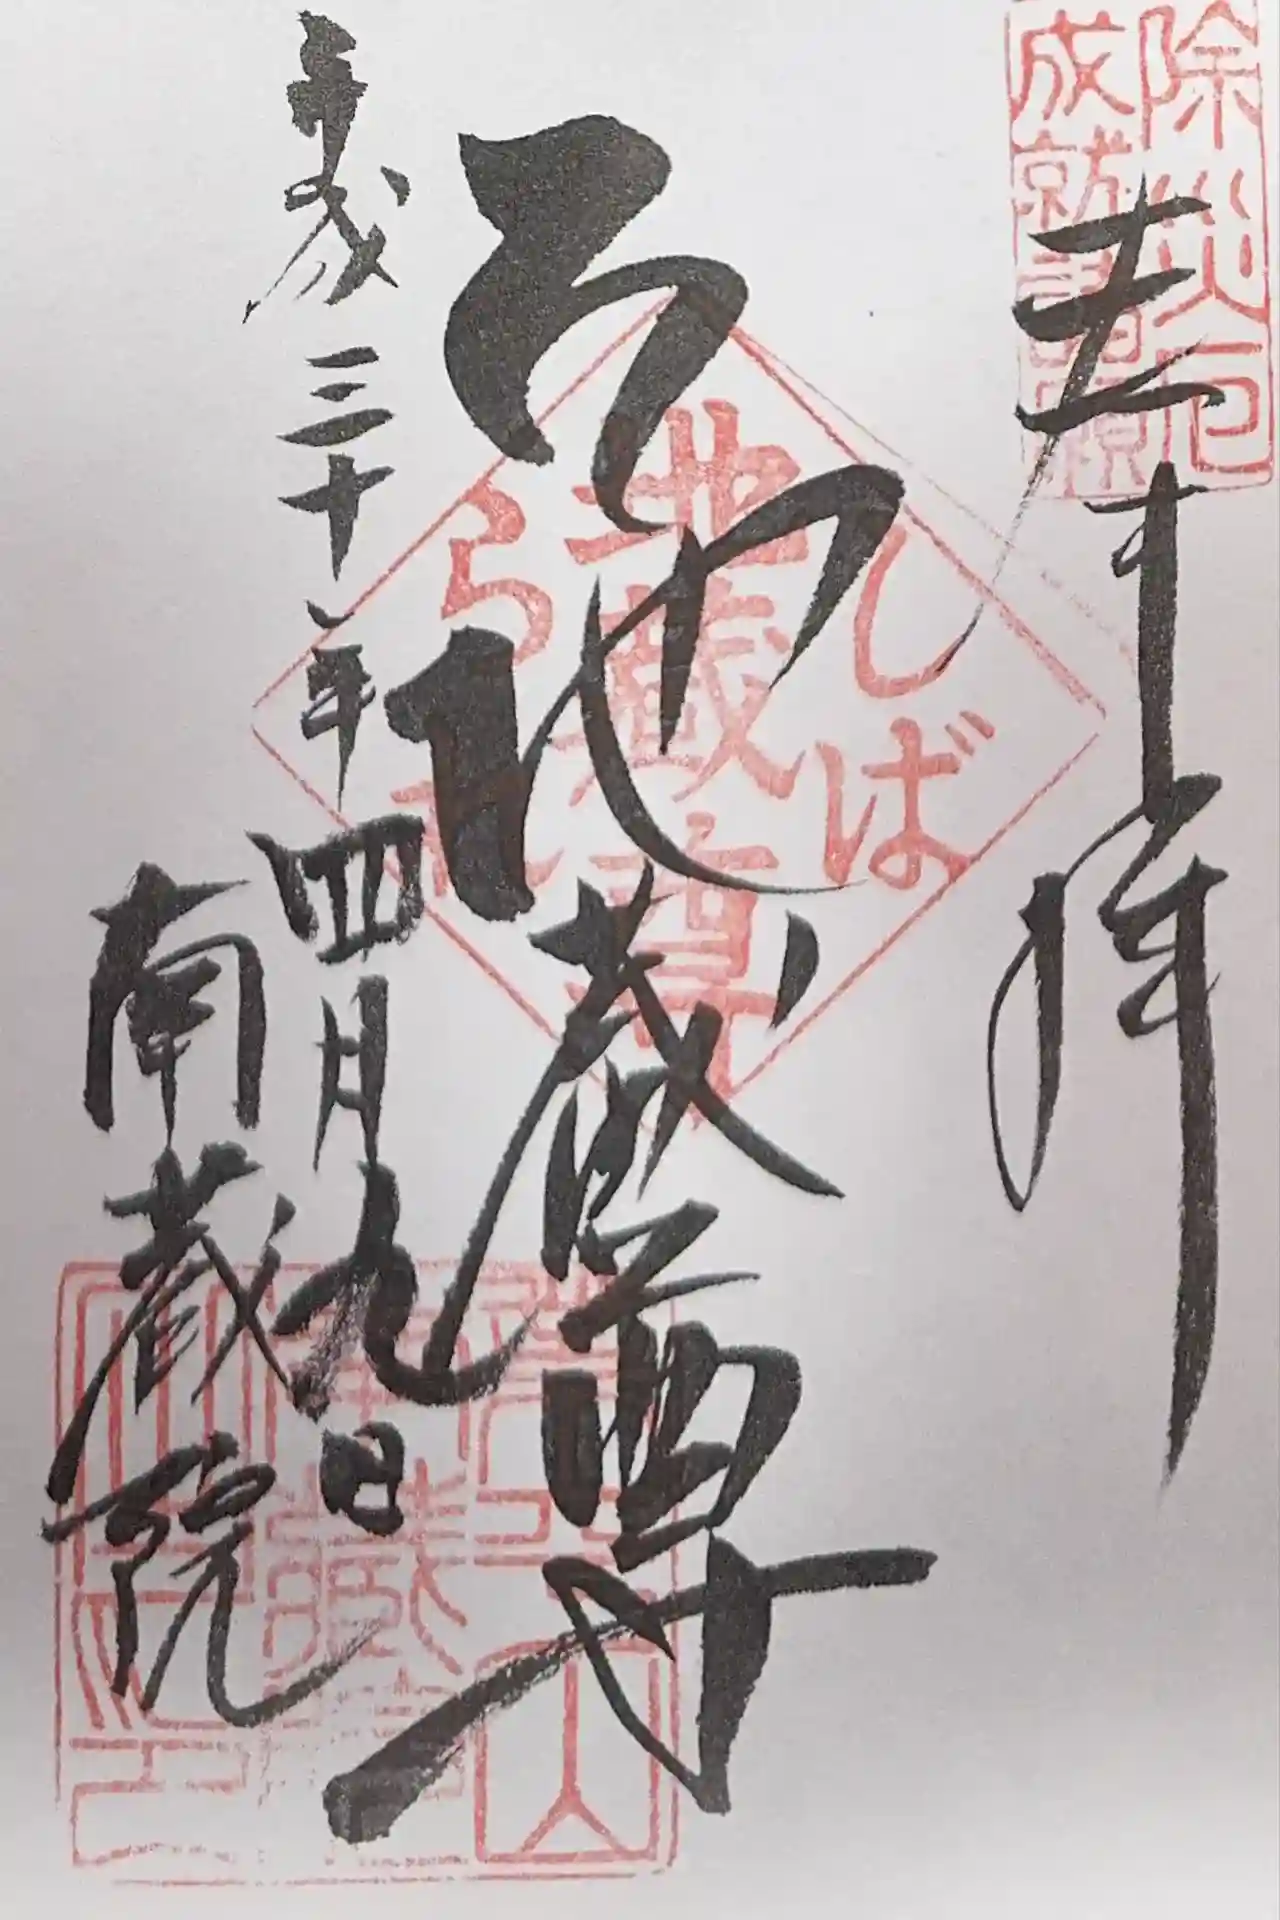 除災厄
成就諸願
奉拝
しば
地蔵尊
られ
地蔵尊
平成三十一年四月九日
南蔵院